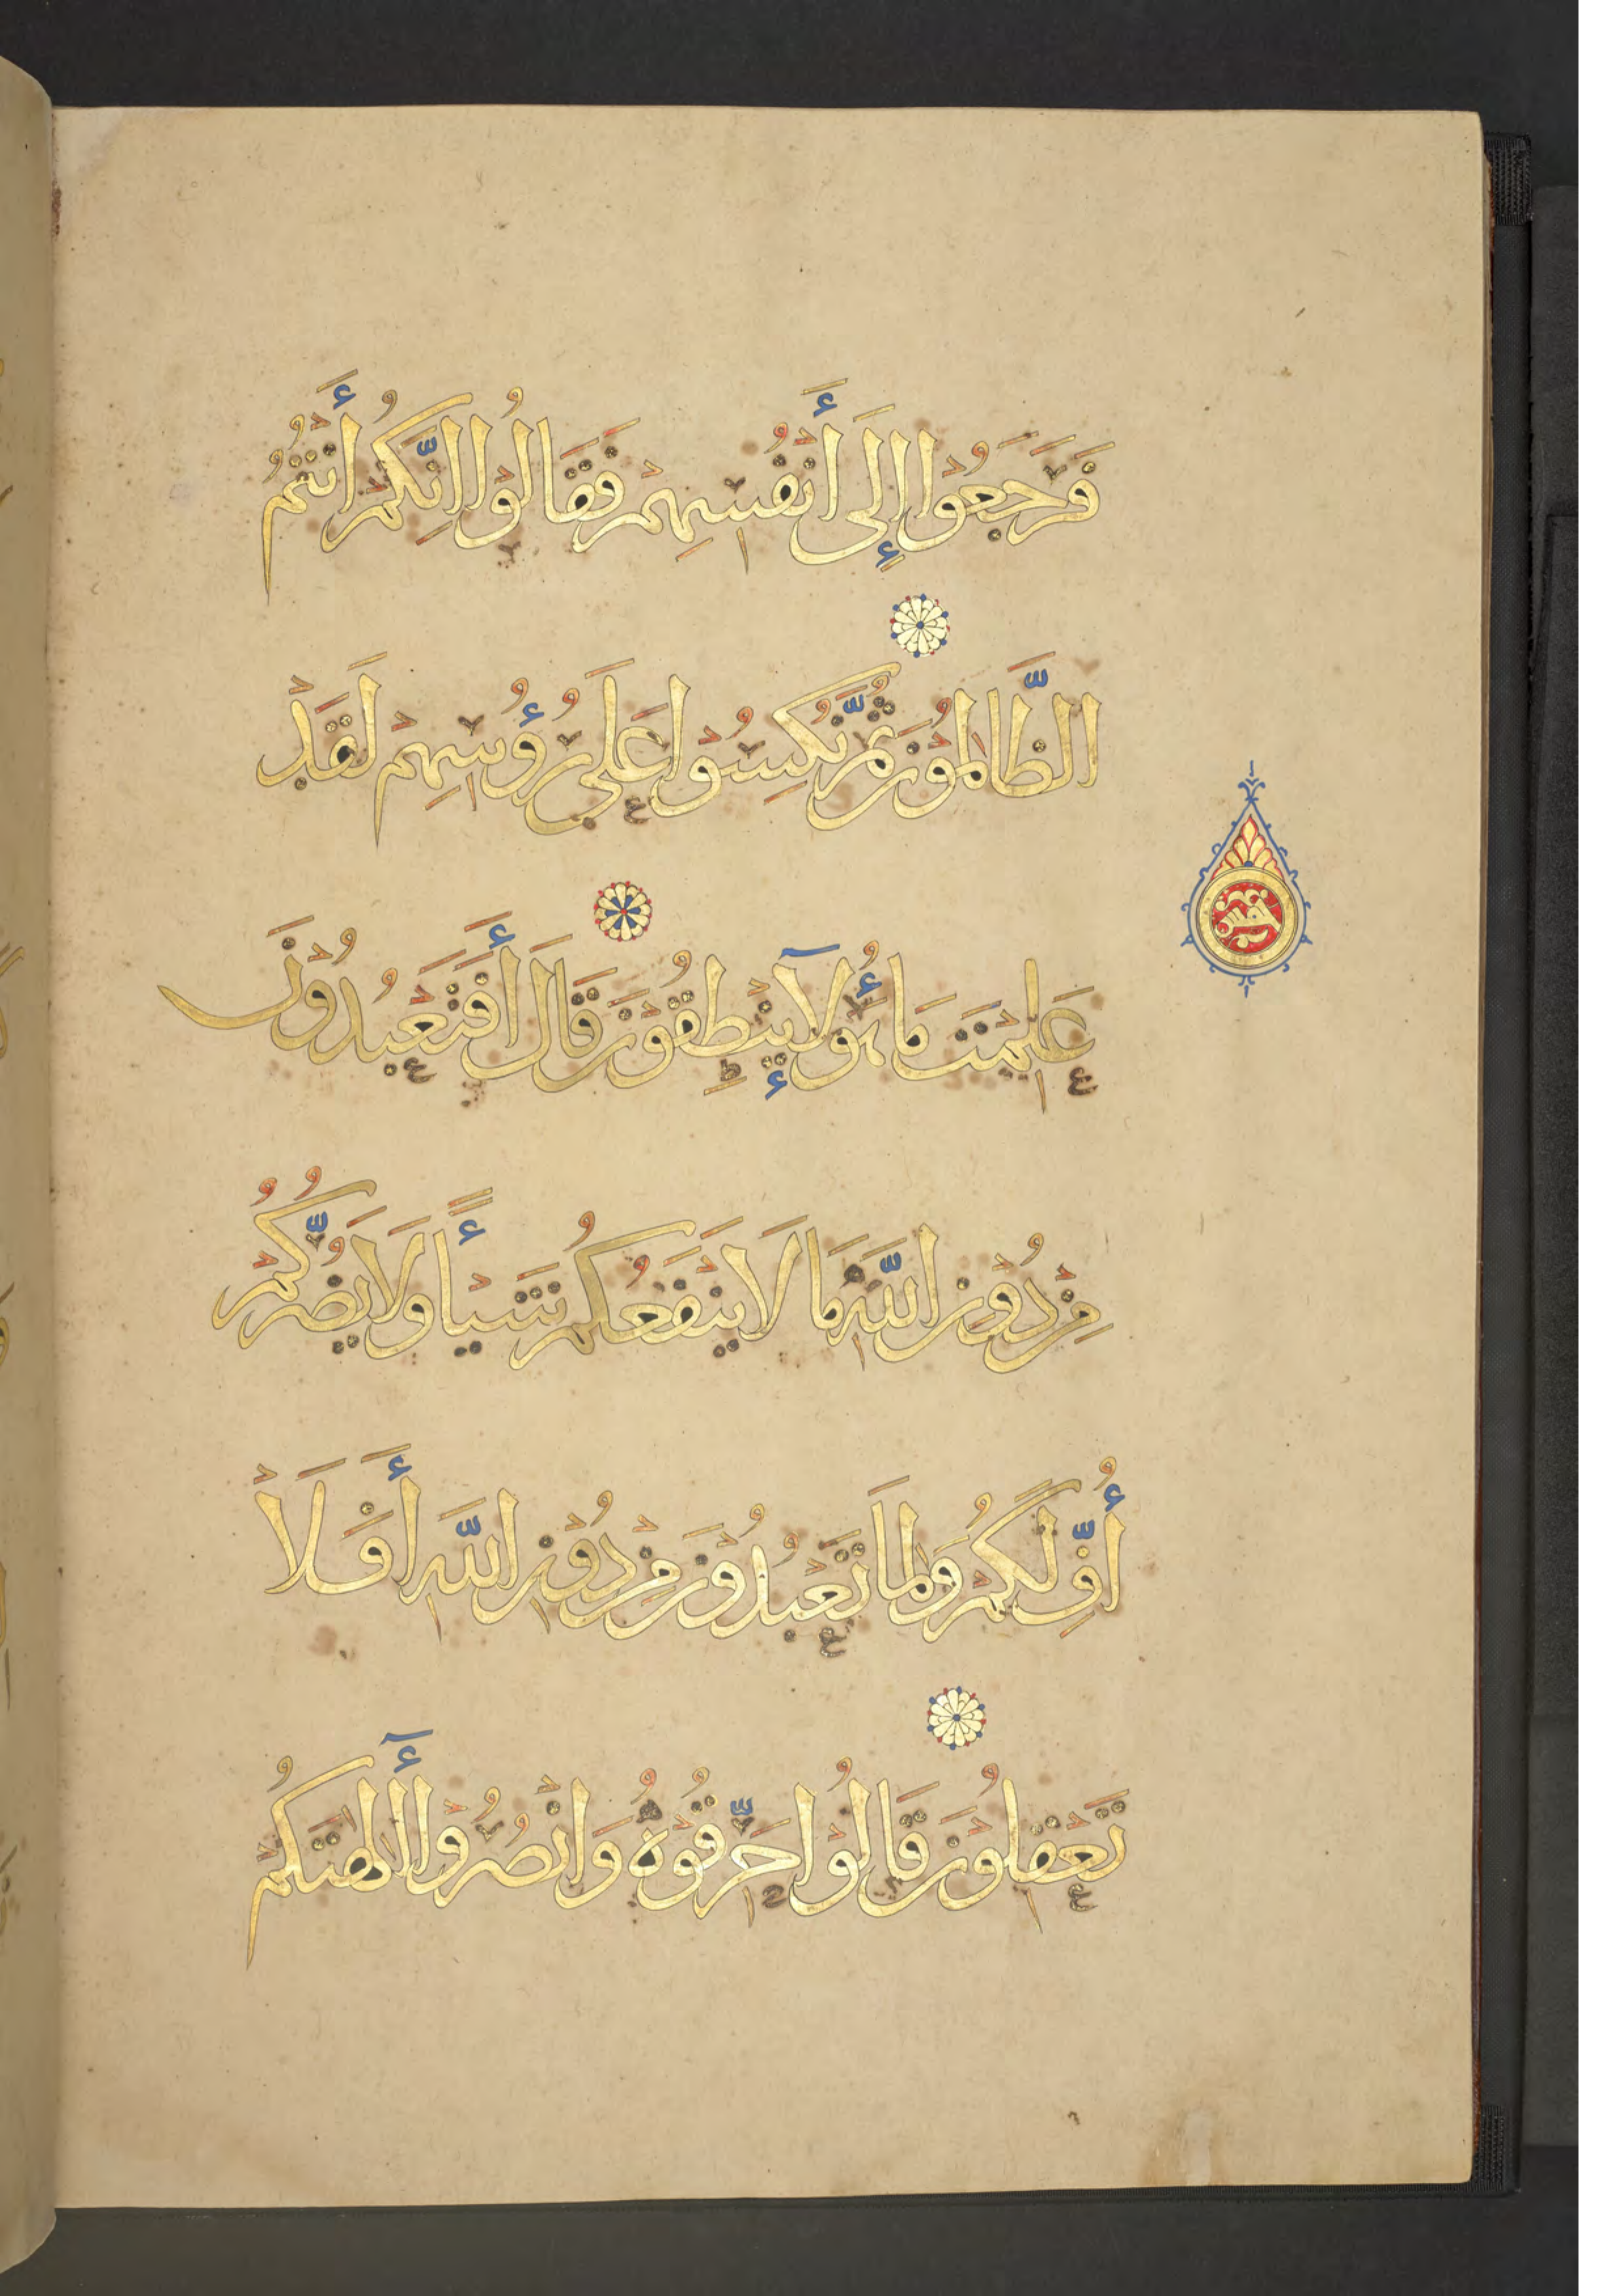 فَرَجَعُوا إِلَى أَنْفُسِهِمْ فَقَالُوا إِنَّكُمْ أَنْتُمُ
الظَّالِمُونَ ثُمَّ نُكِسُوا عَلَى رُؤُسِهِمْ لَقَدْ
عَلِمْتَ مَا هَؤُلَآءِ يَنْطِقُونَ قَالَ أَفَتَعْبُدُونَ
مِنْ دُونِ اللَّهِ مَا لَا يَنْفَعُكُمْ شَيْئًا وَلَا يَضُرُّكُمْ
أُفٍّ لَكُمْ وَلِمَا تَعْبُدُونَ مِنْ دُونِ اللَّهِ أَفَلَا
تَعْقِلُونَ قَالُوا حَرِّقُوهُ وَانْصُرُوا أَالِهَتَكُمْ